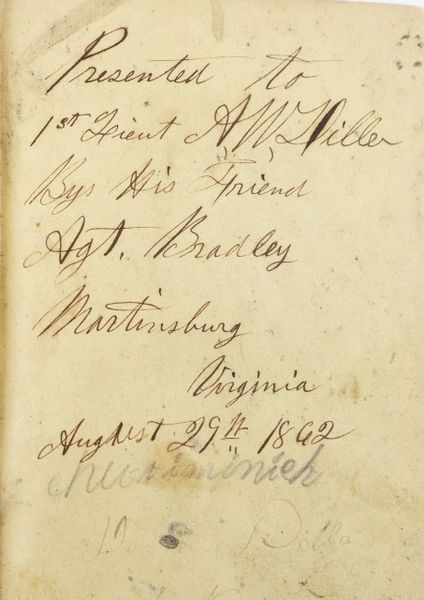 Presented to
1st Lieut A, W, Diller
Bys His Friend
Agt. Bradley
Martinsburg
Virginia
Aughust 29th 1862
D